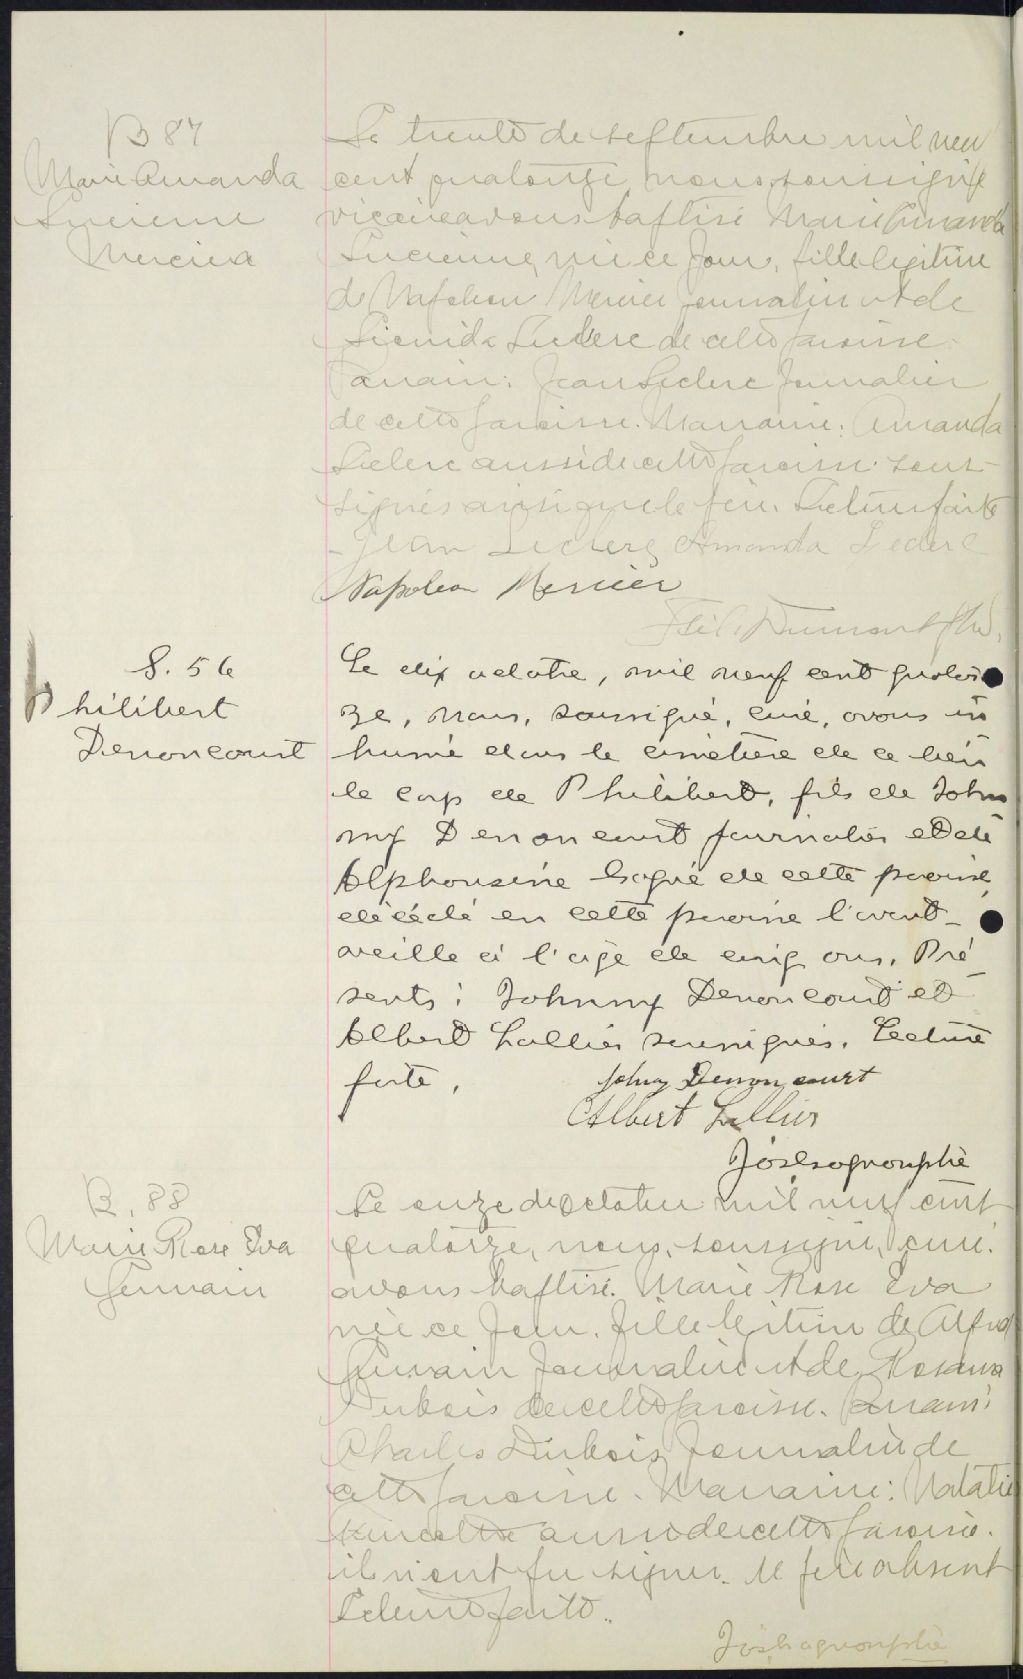 B 87
Marie Amanda
Lucienne
Mercier
Le trente de septembre mil neuf
cent quatorze nous, soussigné
vicaire avons baptisé Marie Amanda
Lucienne, née ce jour, fille légitime
de Napoléon Mercier journalier et de
Leclerc de cette paroisse.
Parrain: Jean Leclerc journalier
de cette paroisse. Marraine: Amanda
Leclerc aussi de cette paroisse sous-
signés ainsi que le père. Lecture faite
Jean Leclerc Amanda Leclerc
Napoleon Mercier
Dumont Ptre.
S. 56
Philibert
Denoncourt
Le dix octobre, mil neuf cent quator
ze, nous, soussigné, curé, avons in
humé dans le cimetière de ce lieu
le corp de Philibert, fils de John
ny Denoncourt journalier et de
Alphonsine de cette paroisse,
décédé en cette paroisse l'avant-
veille à l'age de cinq ans. Pré
sents: Johnny Denoncourt et
Albert Lallier soussignés. Lecture
faite.
Johny Denoncourt
Albert Lallier
B. 88
Marie Rose Eva
Germain
Le onze d'octobre mil neuf cent
quatorze, nous, soussigné, curé.
avons baptisé. Marie Rose Eva
née ce jour. fille légitime de Alfred
Germain journalier et de Rosanna
Dubois de cette paroisse. Parrain:
Charles Dubois journalier de
cette paroisse. Marraine: Natalie
aussi de cette paroisse.
ils n'ont pu signer. le père absent
Lecture faite.